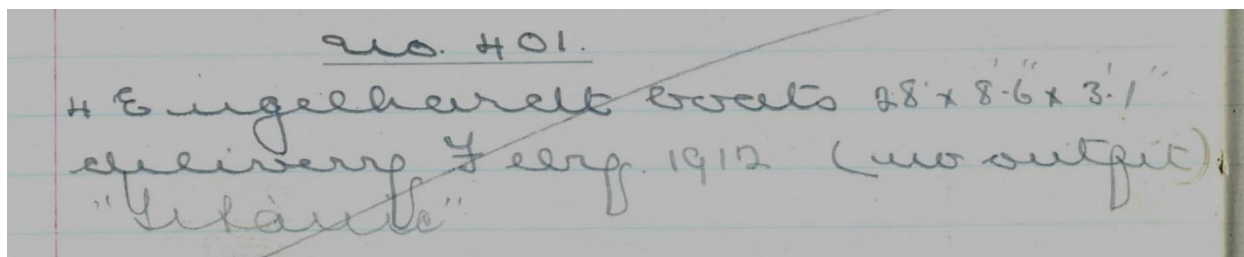 No. 401.
4 Engelhardt boats 28' x 8'-6" x 3'.1"
delivery Feby. 1912 (no outfit).
"Titanic"